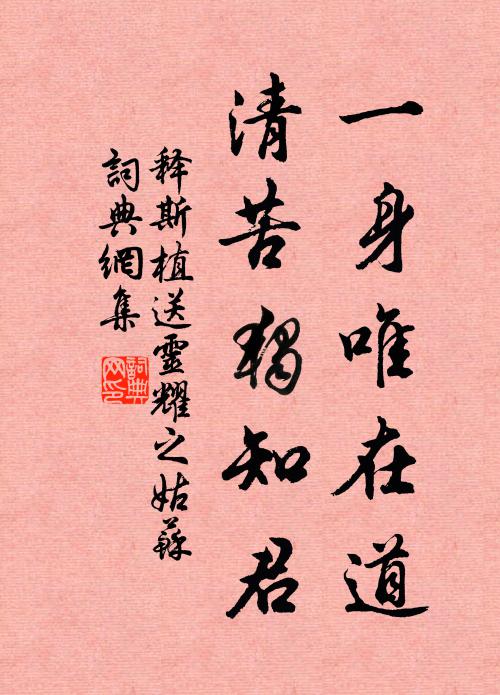 一身唯在道
清苦獨知君
释斯植送靈耀之姑蘇
詞典網集
詞典網印